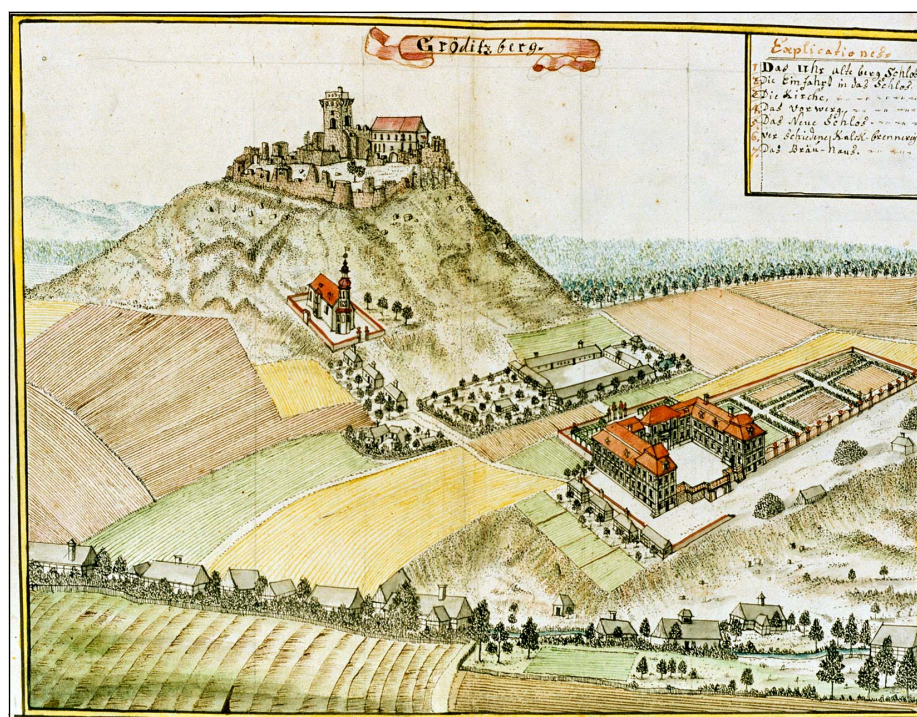 Gröditzberg.
Explicationes.
1. Das Uhr alte berg Schlos
2. Die Einfahrt in das Schlos.
3. Die Kirche,
4. Das vorwerg,
5. Das Neue Schlos
6. verschiedene Kalck-brennereÿ
7. Das Bräu-Haus.